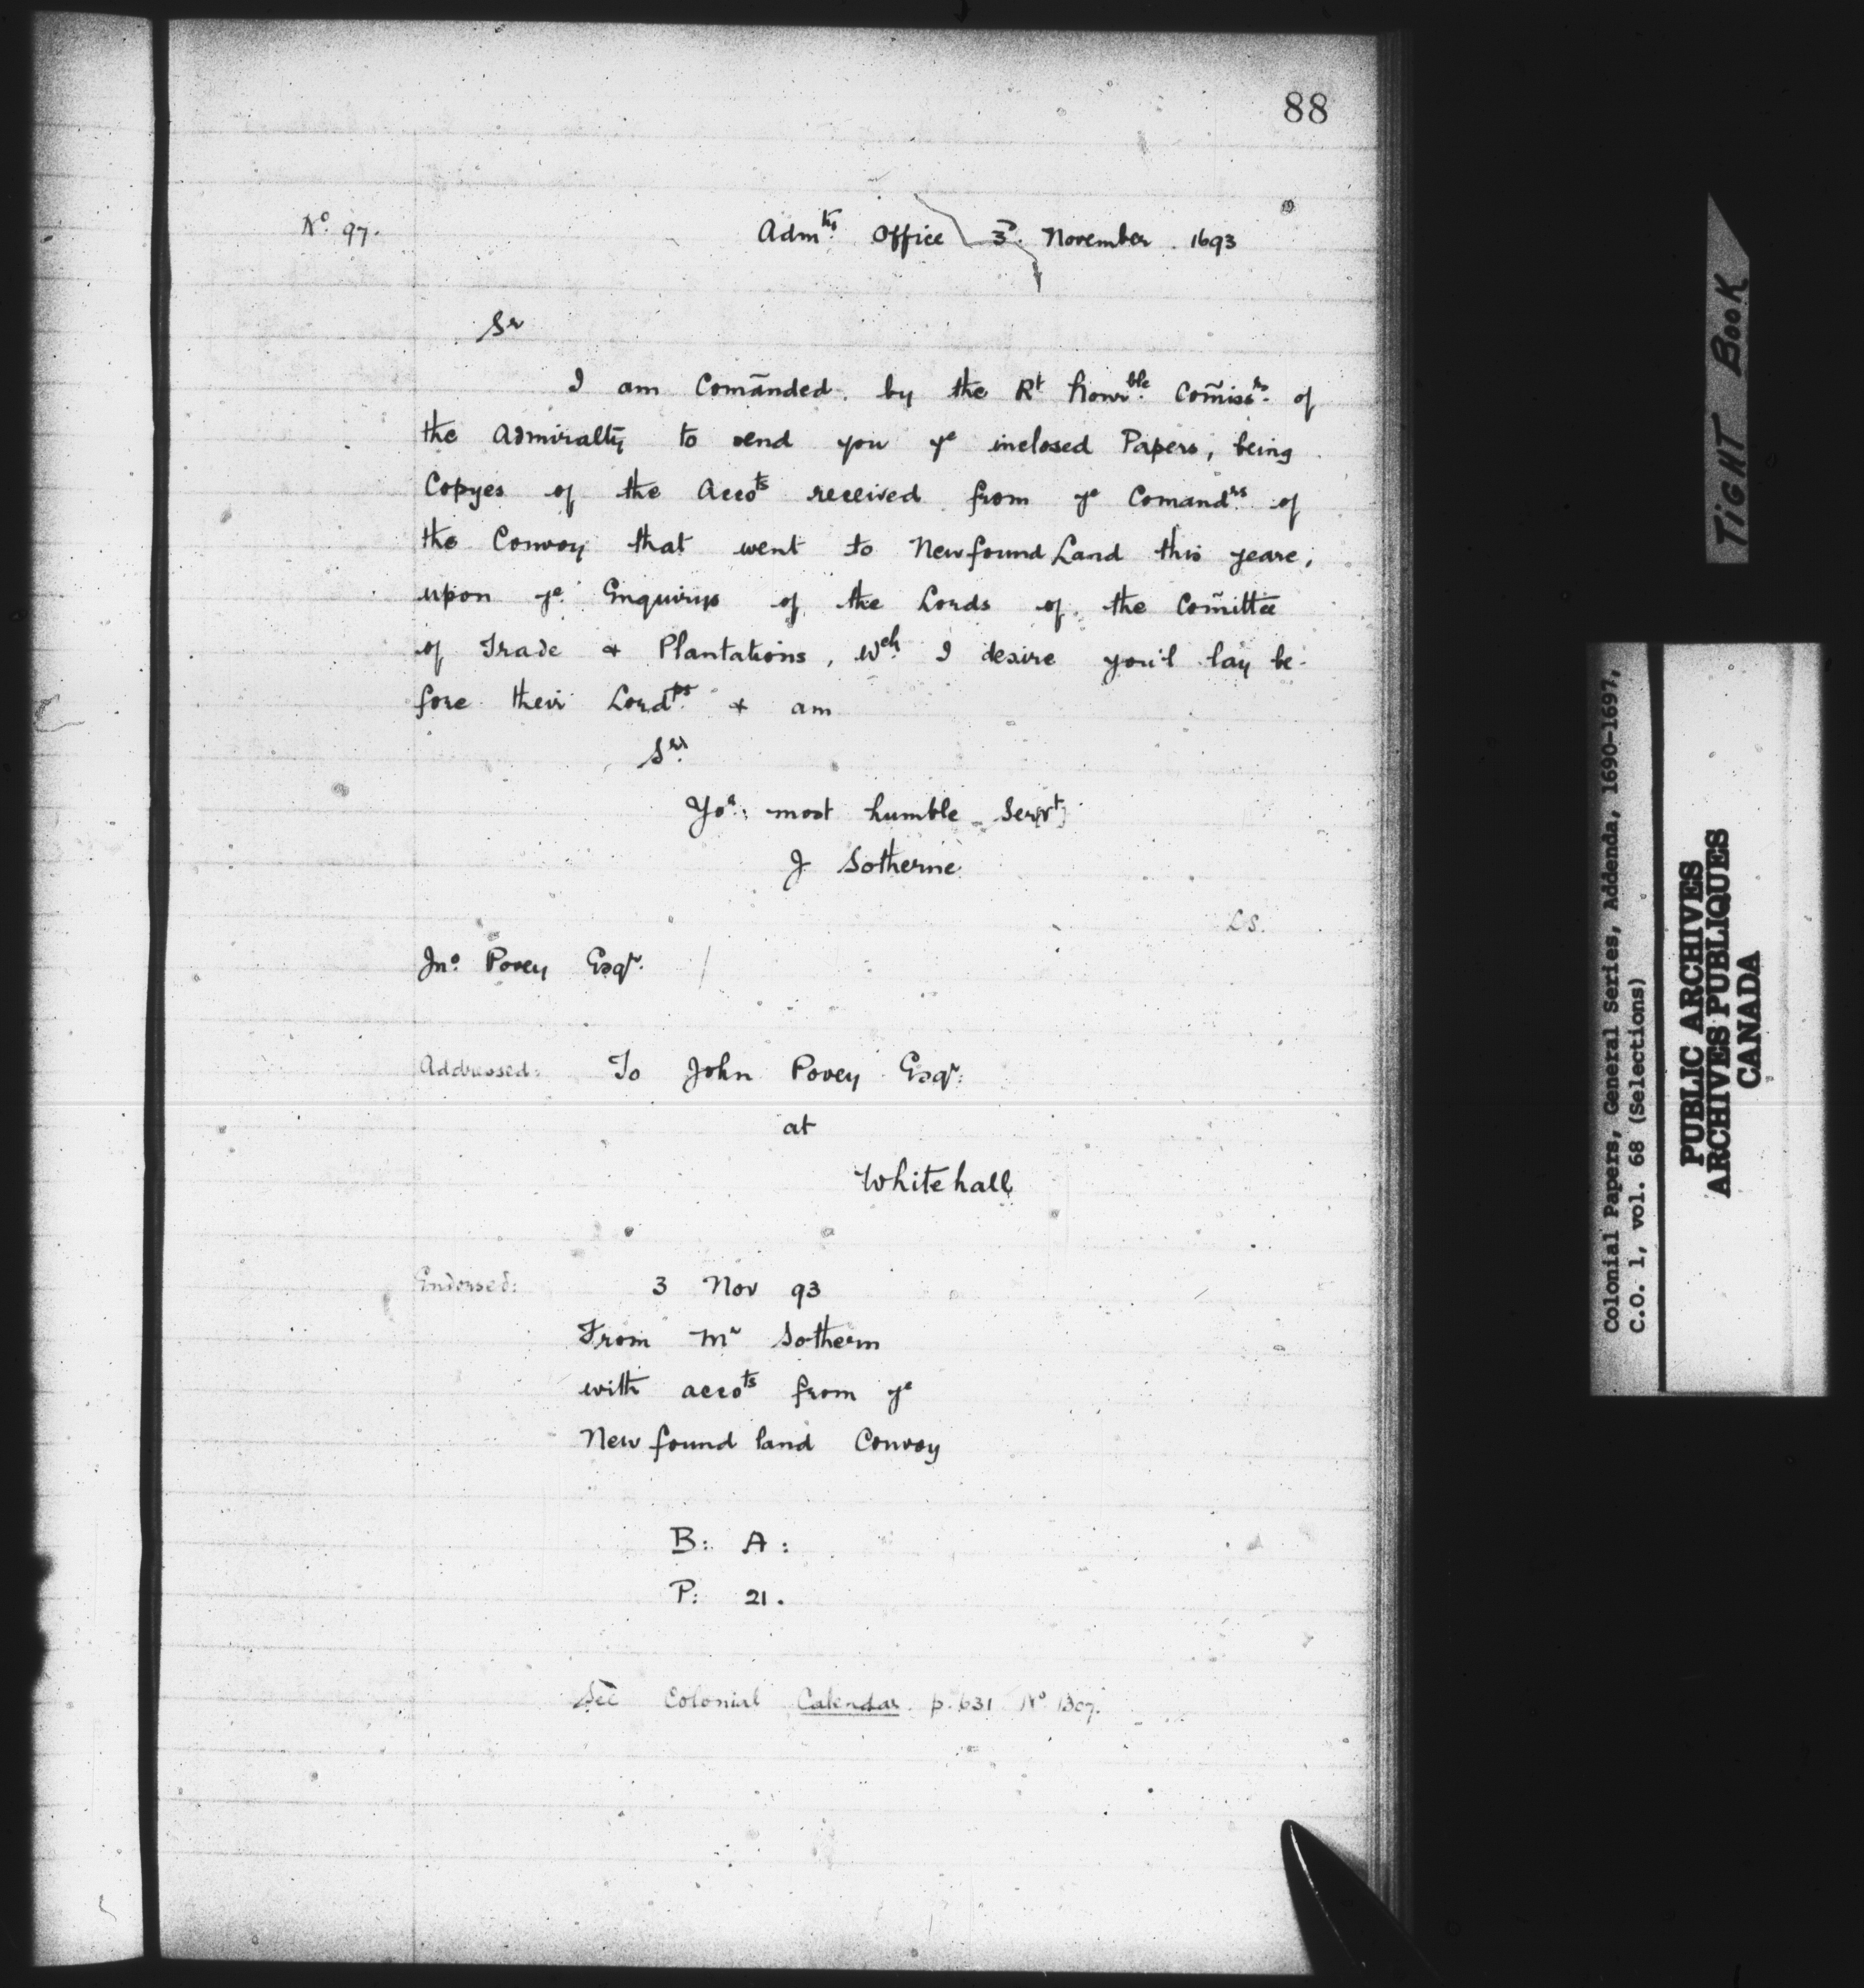 88
No. 97.
Admty. Office 3d. November 1693
Sr
I am Com̄anded by the Rt honrble. Com̄issrs. of
the Admiralty to send you ye inclosed Papers, being
Copyes of the Accots received from ye Comandrs. of
the Convoy that went to Newfound Land this yeare,
upon ye Enquirys of the Lords of the Com̄ittee
of Trade & Plantations, Wch I desire you'l lay be-
fore their Lordps. & am
Sr.
Yor: most humble Ser[vt]
J Sotherne
LS.
Jno. Povey Esqr.
Addressed: To John Povey Esqr:
at
Whitehall
Endorsed: 3 Nov 93
From Mr Sothern
with accots from ye
Newfound land Convoy
B: A:
P: 21.
See Colonial Calendar p. 631 No. 1307.
TIGHT BOOK
Colonial Papers, General Series, Addenda, 1690-1697,
C.O. 1, vol. 68 (Selections)
PUBLIC ARCHIVES
ARCHIVES PUBLIQUES
CANADA